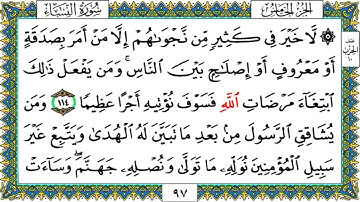 الجزء الخامس
سورة النساء
۞ لَّا خَيْرَ فِي كَثِيرٍ مِّن نَّجْوَىٰهُمْ إِلَّا مَنْ أَمَرَ بِصَدَقَةٍ
أَوْ مَعْرُوفٍ أَوْ إِصْلَٰحٍۭ بَيْنَ النَّاسِ ۚ وَمَن يَفْعَلْ ذَٰلِكَ
ابْتِغَآءَ مَرْضَاتِ اللَّهِ فَسَوْفَ نُؤْتِيهِ أَجْرًا عَظِيمًا ١١٤ وَمَن
يُشَاقِقِ الرَّسُولَ مِنۢ بَعْدِ مَا تَبَيَّنَ لَهُ الْهُدَىٰ وَيَتَّبِعْ غَيْرَ
سَبِيلِ الْمُؤْمِنِينَ نُوَلِّهِۦ مَا تَوَلَّىٰ وَنُصْلِهِۦ جَهَنَّمَ ۖ وَسَآءَتْ
٩٧